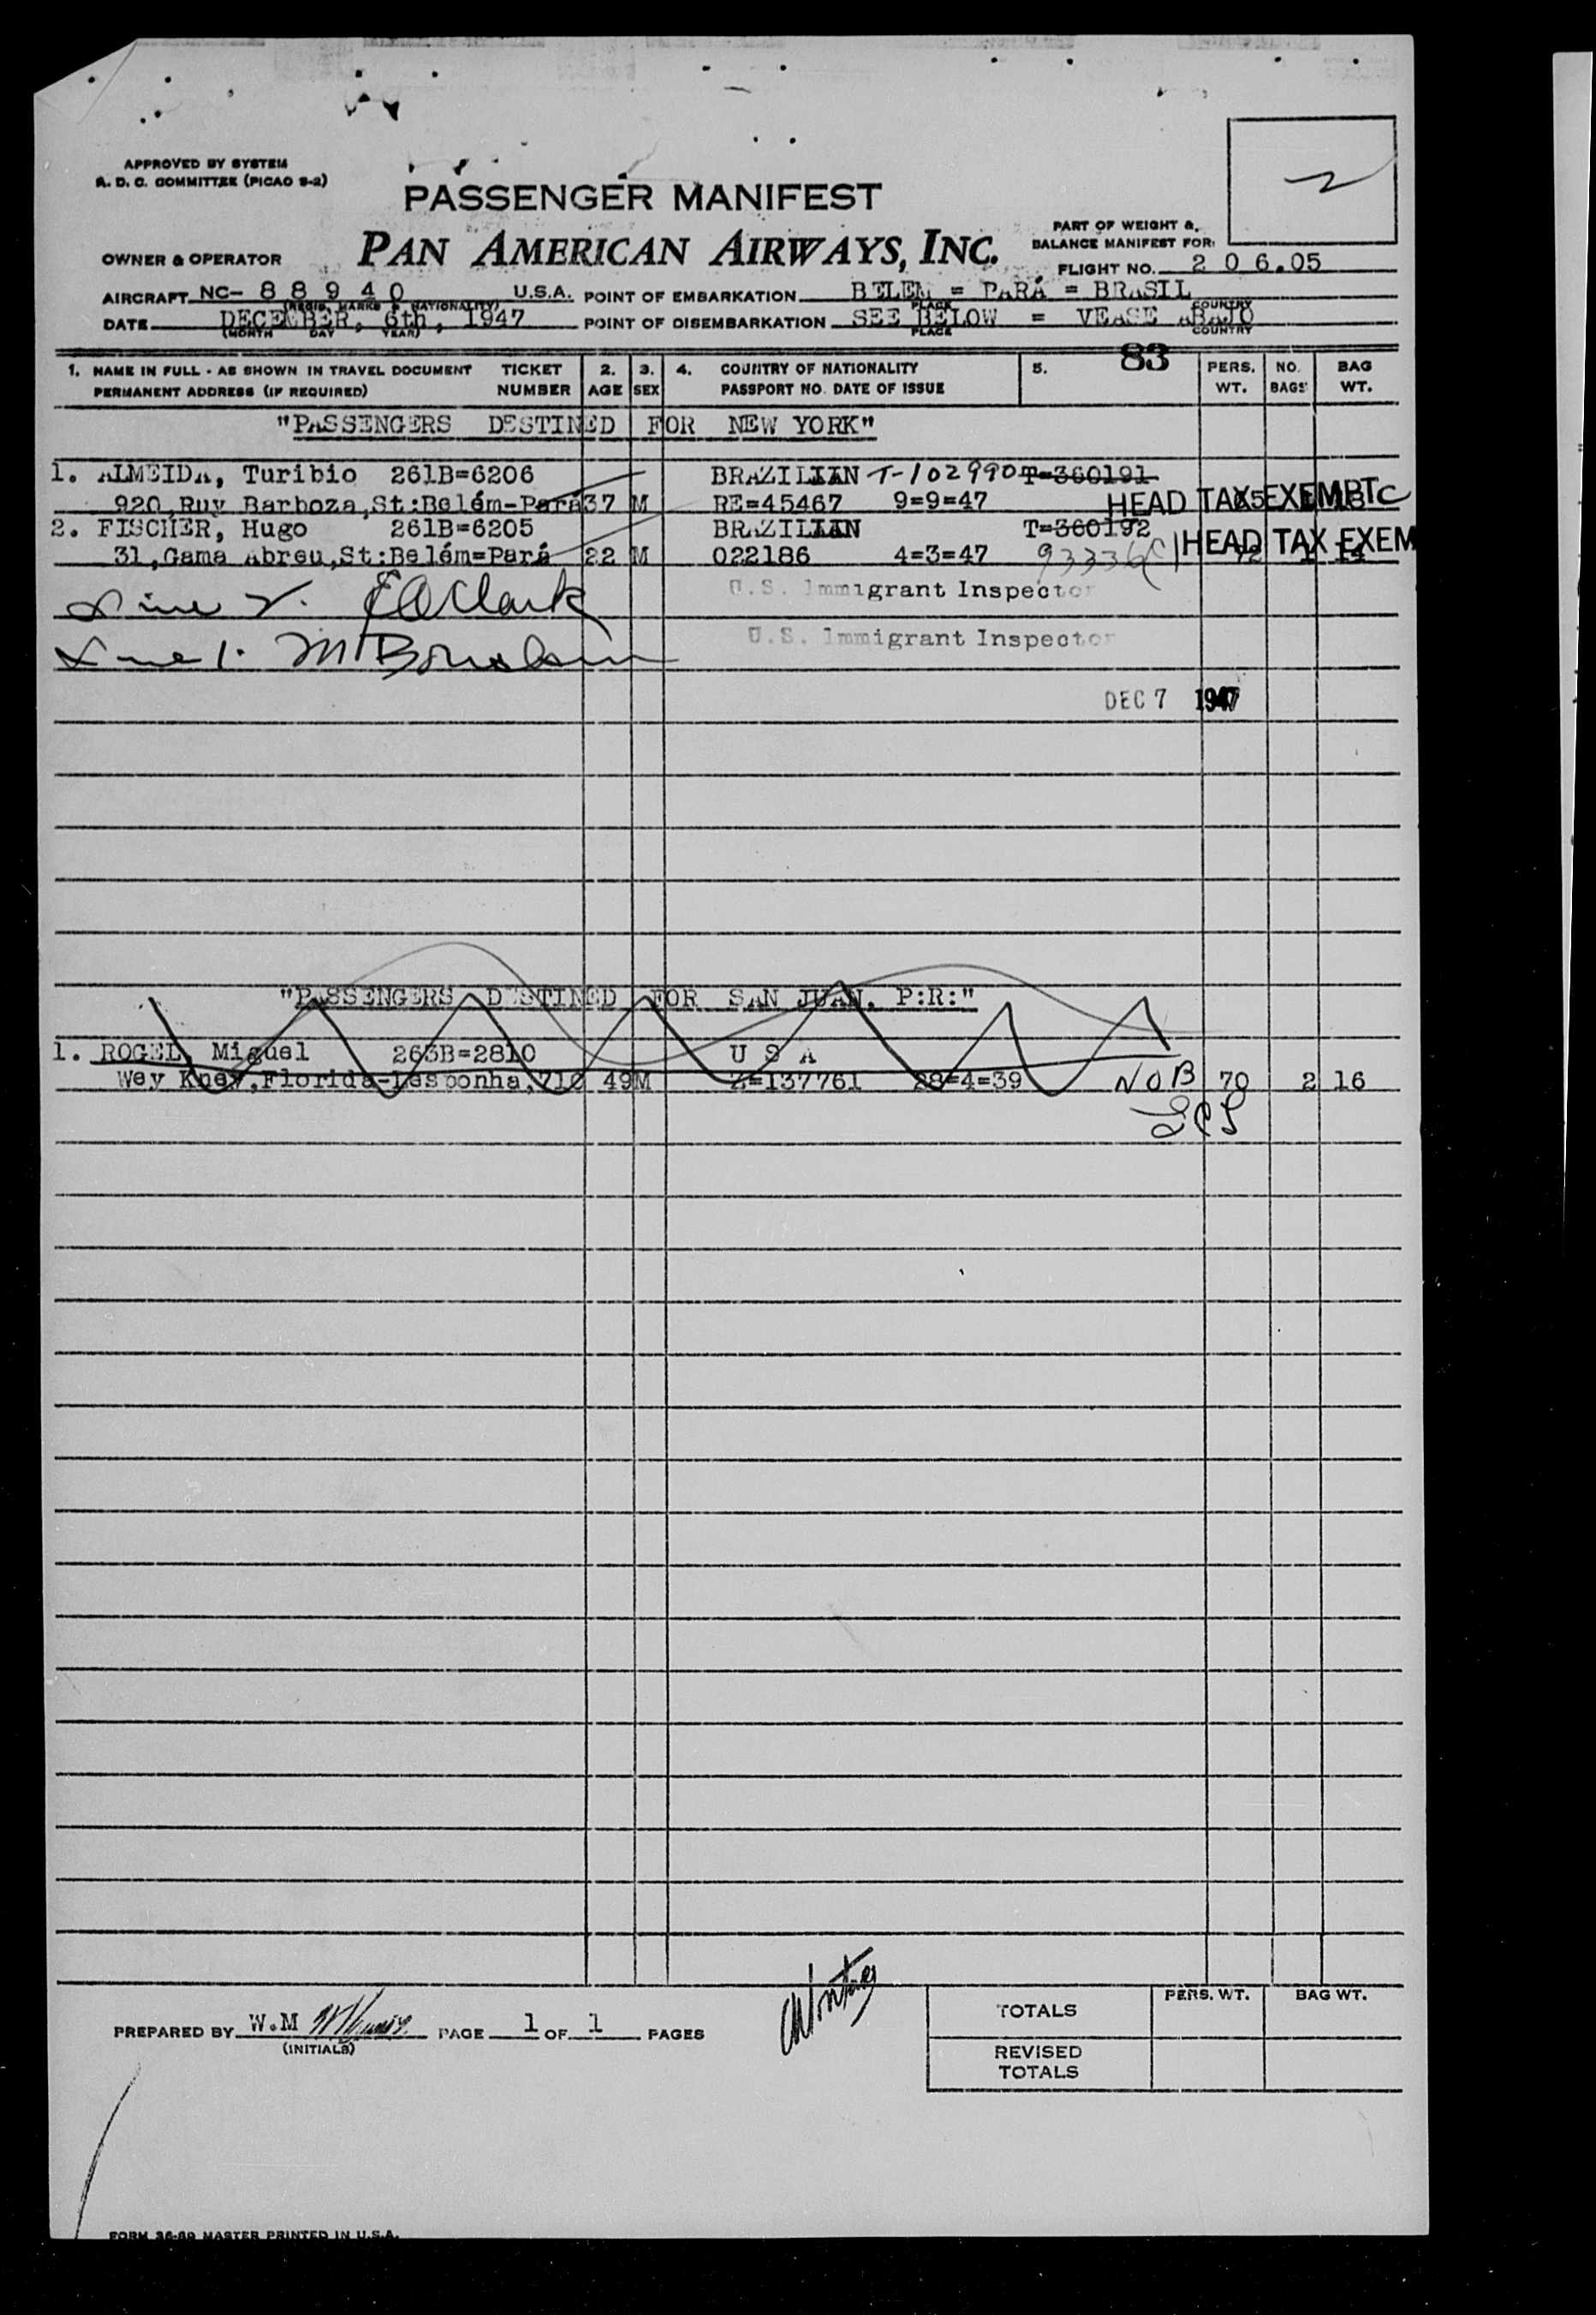 APPROVED BY SYSTEM
A. D. C. COMMITTEE (PICAO S-2)
2
PASSENGER MANIFEST
PAN AMERICAN AIRWAYS, INC.
PART OF WEIGHT &
BALANCE MANIFEST FOR:
OWNER & OPERATOR
FLIGHT NO. 2 0 6.05
AIRCRAFT NC- 8 8 9 4 0 U.S.A. POINT OF EMBARKATION BELEM = PARÁ = BRASIL
(REGIS. MARKS & NATIONALITY) PLACE COUNTRY
DATE DECEMBER, 6th, 1947 POINT OF DISEMBARKATION SEE BELOW = VEASE ABAJO
(MONTH DAY YEAR) PLACE COUNTRY
83
1. NAME IN FULL - AS SHOWN IN TRAVEL DOCUMENT TICKET 2. 3. 4. COUNTRY OF NATIONALITY 5. PERS. NO. BAG
PERMANENT ADDRESS (IF REQUIRED) NUMBER AGE SEX PASSPORT NO. DATE OF ISSUE WT. BAGS WT.
"PASSENGERS DESTINED FOR NEW YORK"
1. ALMEIDA, Turibio 261B=6206 BRAZILIAN T-102990 T=360191
920,Ruy Barboza,St:Belém-Pará 37 M RE=45467 9=9=47 HEAD TAX EXEMPT
2. FISCHER, Hugo 261B=6205 BRAZILIAN T=360192
31,Gama Abreu,St:Belém=Pará 22 M 022186 4=3=47 HEAD TAX EXEM
Line 2. Clark U.S. Immigrant Inspector
Line 1. U.S. Immigrant Inspector
DEC 7 1947
"PASSENGERS DESTINED FOR SAN JUAN, P:R:"
1. ROGEL, Miguel 263B=2810 U S A
Wey Kney,Florida-Lesponha,710 49 M Z=137761 28=4=39 NOB 70 2 16
PREPARED BY W.M PAGE 1 OF 1 PAGES
(INITIALS)
TOTALS PERS. WT. BAG WT.
REVISED
TOTALS
FORM 36-69 MASTER PRINTED IN U.S.A.